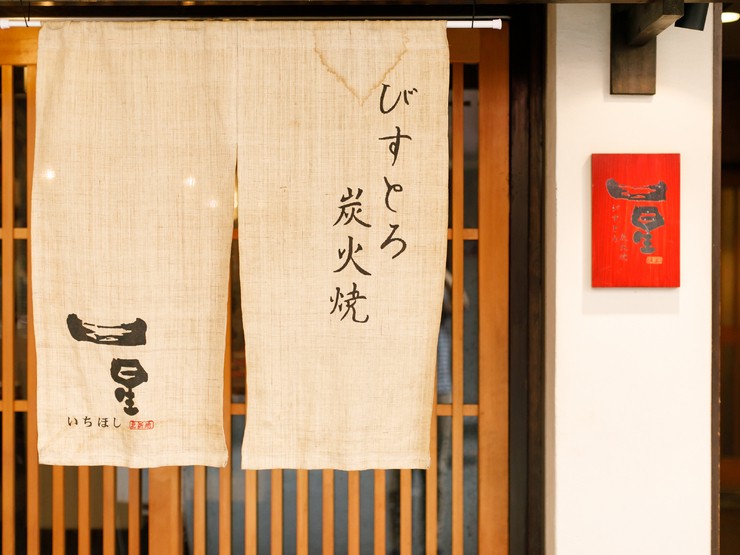 びすとろ
炭火焼
一星
いちほし
一星
びすとろ
炭火焼